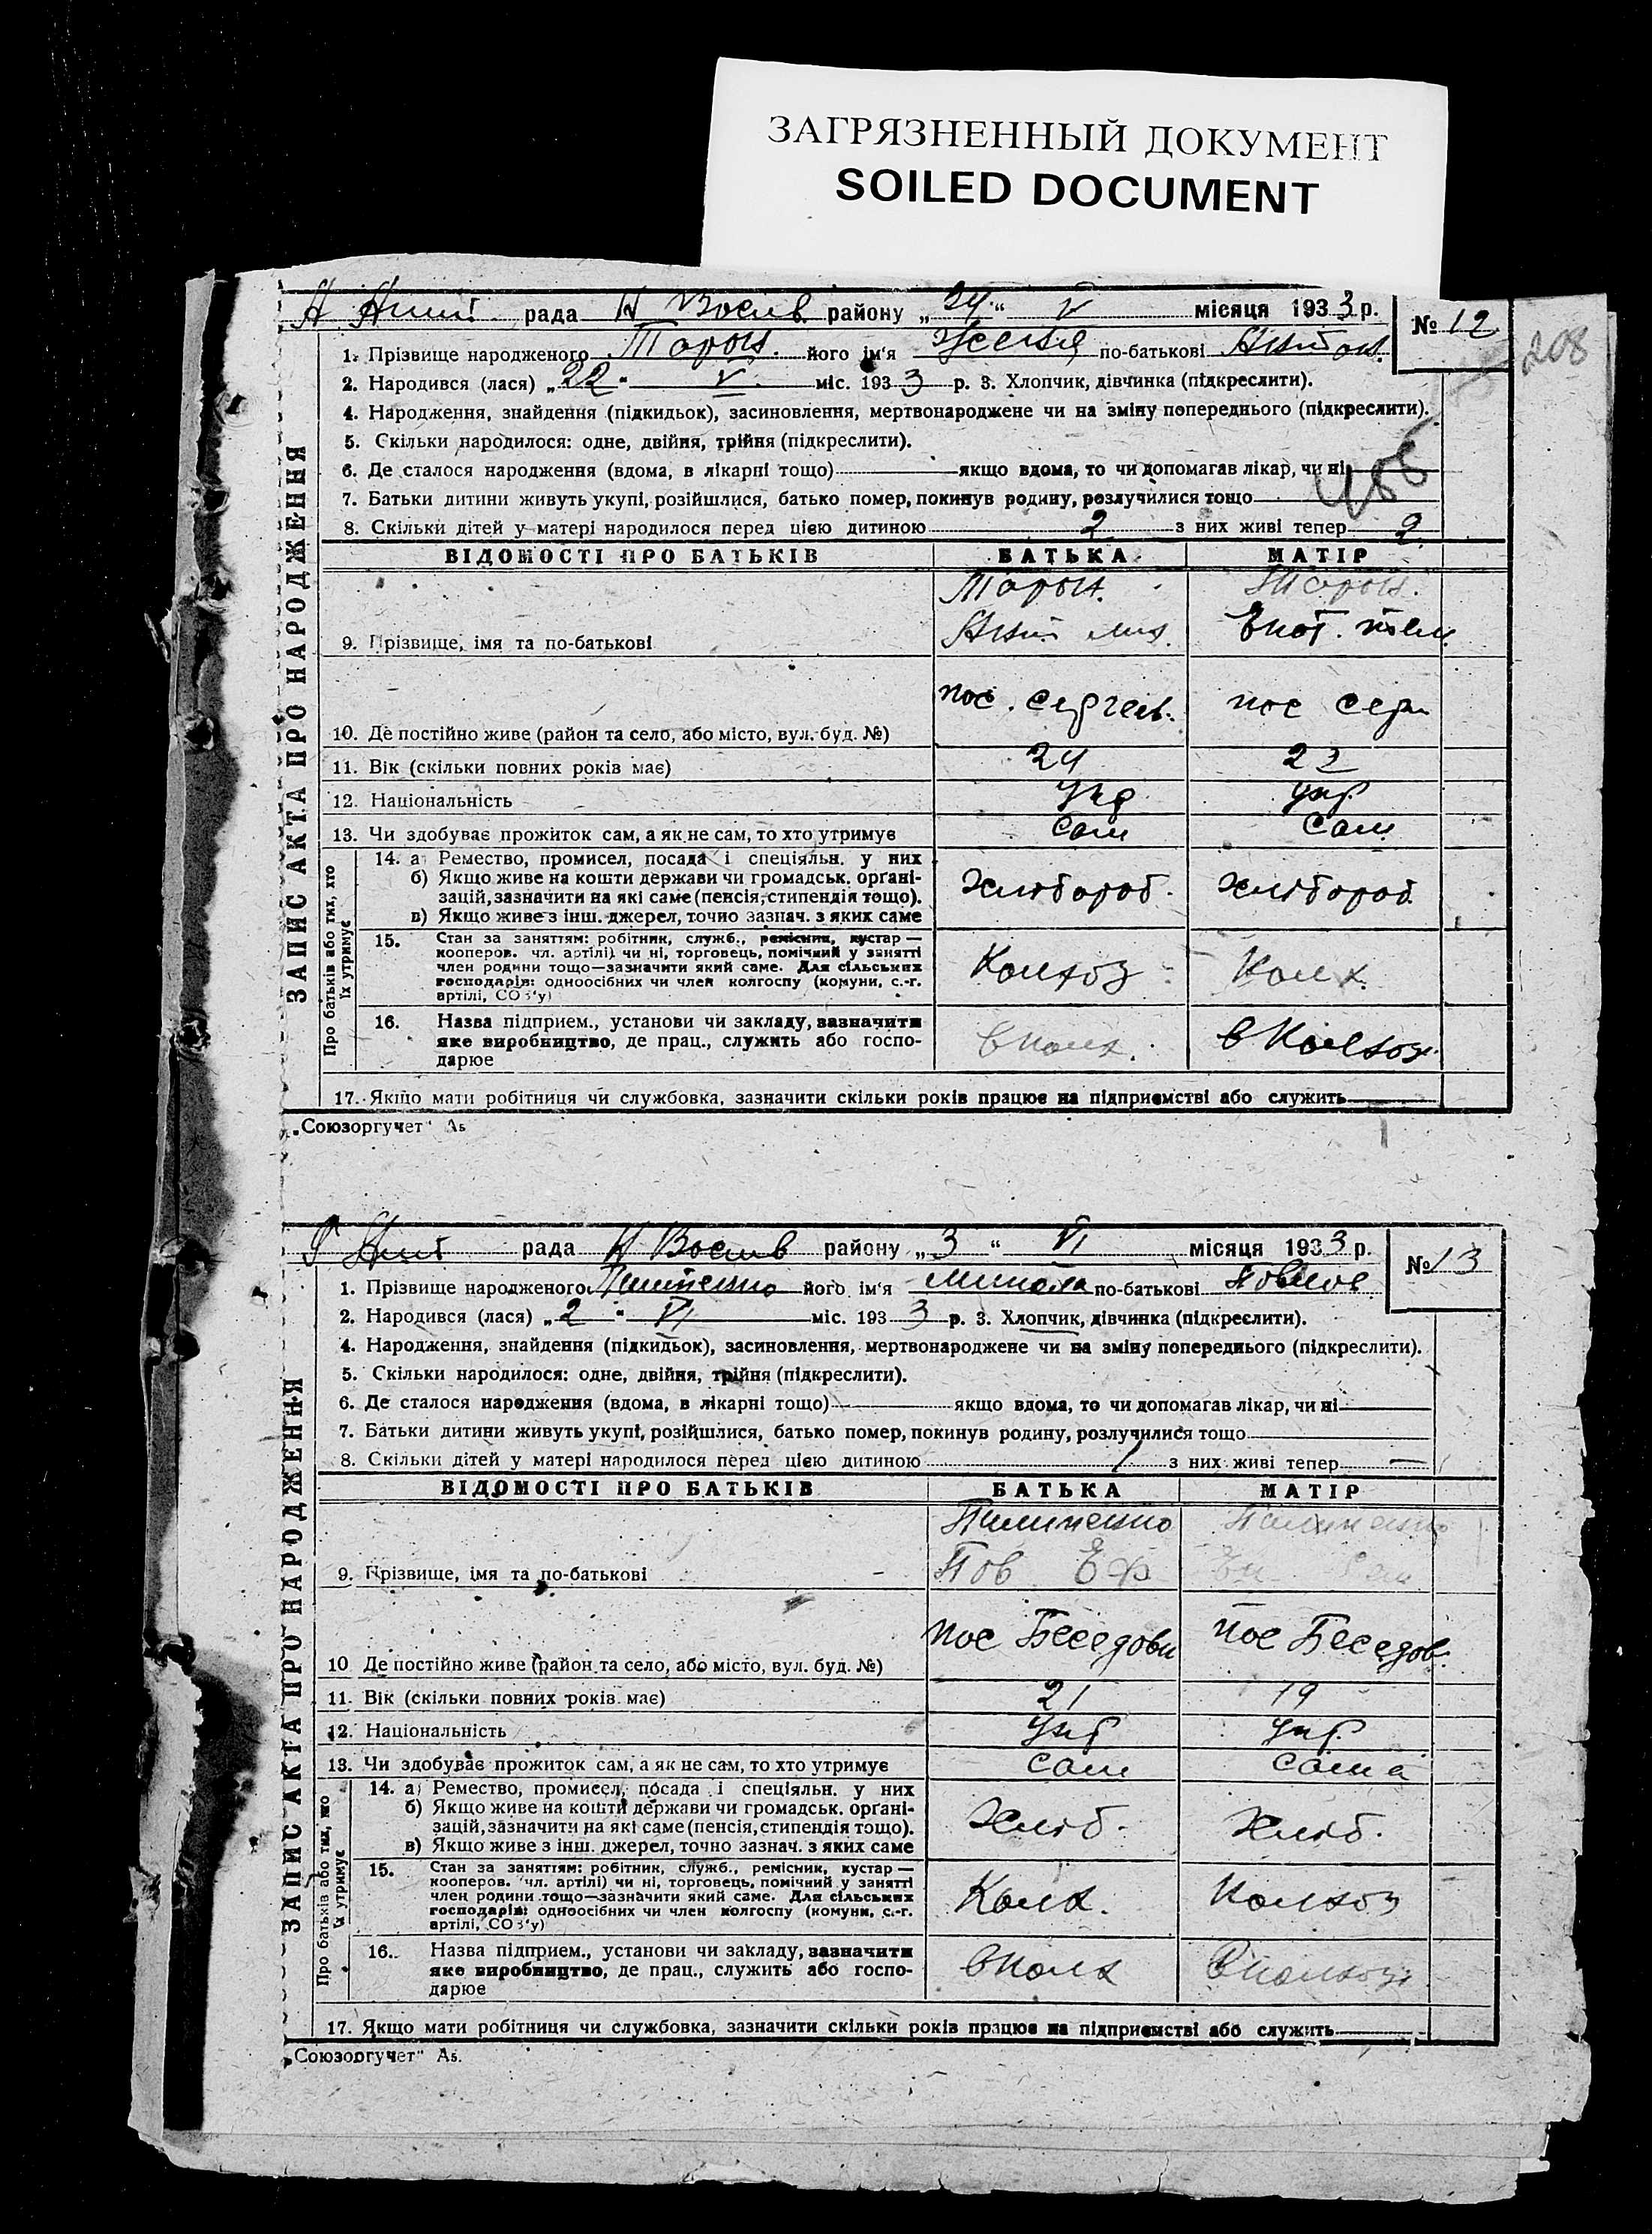 ЗАГРЯЗНЕННЫЙ ДОКУМЕНТ
SOILED DOCUMENT
рада Н Восьив. району „24“ V місяця 1933 р. № 12
208
1. Прізвище народженого Таран. його ім‘я по-батькові Антон.
2. Народився (лася) „22“ V міс. 1933 р. 3. Хлопчик, дівчинка (підкреслити).
4. Народження, знайдення (підкидьок), засиновлення, мертвонароджене чи на зміну попереднього (підкреслити).
5. Скільки народилося: одне, двійня, трійня (підкреслити).
6. Де сталося народження (вдома, в лікарні тощо) якщо вдома, то чи допомагав лікар, чи ні
7. Батьки дитини живуть укупі, розійшлися, батько помер, покинув родину, розлучилися тощо
8. Скільки дітей у матері народилося перед цією дитиною 2 з них живі тепер 2
ВІДОМОСТІ ПРО БАТЬКІВ БАТЬКА МАТІР
Таран. Таран.
9. Прізвище, імя та по-батькові
пос. сергеев. пос серг
10. Де постійно живе (район та село, або місто, вул. буд. №)
11. Вік (скільки повних років має) 24 22
12. Національність Укр укр.
13. Чи здобуває прожиток сам, а як не сам, то хто утримує сам сам
14. а) Ремество, промисел, посада і спеціяльн. у них
б) Якщо живе на кошти держави чи громадськ. органі-
зацій, зазначити на які саме (пенсія, стипендія тощо). хлібороб. хлібороб.
в) Якщо живе з інш. джерел, точно зазнач. з яких саме
15. Стан за заняттям: робітник, служб., ремісник, кустар —
кооперов. чл. артілі) чи ні, торговець, помічний у занятті
член родини тощо—зазначити який саме. Для сільських Колхоз Колх.
господарів: одноосібних чи член колгоспу (комуни, с.-г.
артілі, СОЗ‘у)
16. Назва підприєм., установи чи закладу, зазначити
яке виробництво, де прац., служить або госпо- в колх. в колхозі
дарює
17. Якщо мати робітниця чи службовка, зазначити скільки років працює на підприємстві або служить
„Союзоргучет“ А5
ЗАПИС АКТА ПРО НАРОДЖЕННЯ
Про батьків або тих, хто їх утримує
рада Н Восьив району „3“ VI місяця 1933 р. № 13
1. Прізвище народженого Пилипенко його ім‘я Микола по-батькові Павлов
2. Народився (лася) „2“ VI міс. 1933 р. 3. Хлопчик, дівчинка (підкреслити).
4. Народження, знайдення (підкидьок), засиновлення, мертвонароджене чи на зміну попереднього (підкреслити).
5. Скільки народилося: одне, двійня, трійня (підкреслити).
6. Де сталося народження (вдома, в лікарні тощо) якщо вдома, то чи допомагав лікар, чи ні
7. Батьки дитини живуть укупі, розійшлися, батько помер, покинув родину, розлучилися тощо
8. Скільки дітей у матері народилося перед цією дитиною 1 з них живі тепер —
ВІДОМОСТІ ПРО БАТЬКІВ БАТЬКА МАТІР
Пилипенко Пилипенко
9. Прізвище, імя та по-батькові Пав Еф
пос Беседовк пос Беседов.
10 Де постійно живе (район та село, або місто, вул. буд. №)
11. Вік (скільки повних років має) 21 19
12. Національність Укр укр.
13. Чи здобуває прожиток сам, а як не сам, то хто утримує сам сама
14. а) Ремество, промисел, посада і спеціяльн. у них
б) Якщо живе на кошти держави чи громадськ. органі-
зацій, зазначити на які саме (пенсія, стипендія тощо). хліб. хліб.
в) Якщо живе з інш. джерел, точно зазнач. з яких саме
15. Стан за заняттям: робітник, служб., ремісник, кустар —
кооперов. чл. артілі) чи ні, торговець, помічний у занятті
член родини тощо—зазначити який саме. Для сільських Колх. Колхоз
господарів: одноосібних чи член колгоспу (комуни, с.-г.
артілі, СОЗ‘у)
16. Назва підприєм., установи чи закладу, зазначити
яке виробництво, де прац., служить або госпо- в колх в колхозі
дарює
17. Якщо мати робітниця чи службовка, зазначити скільки років працює на підприємстві або служить
„Союзоргучет“ А5.
ЗАПИС АКТА ПРО НАРОДЖЕННЯ
Про батьків або тих, хто їх утримує